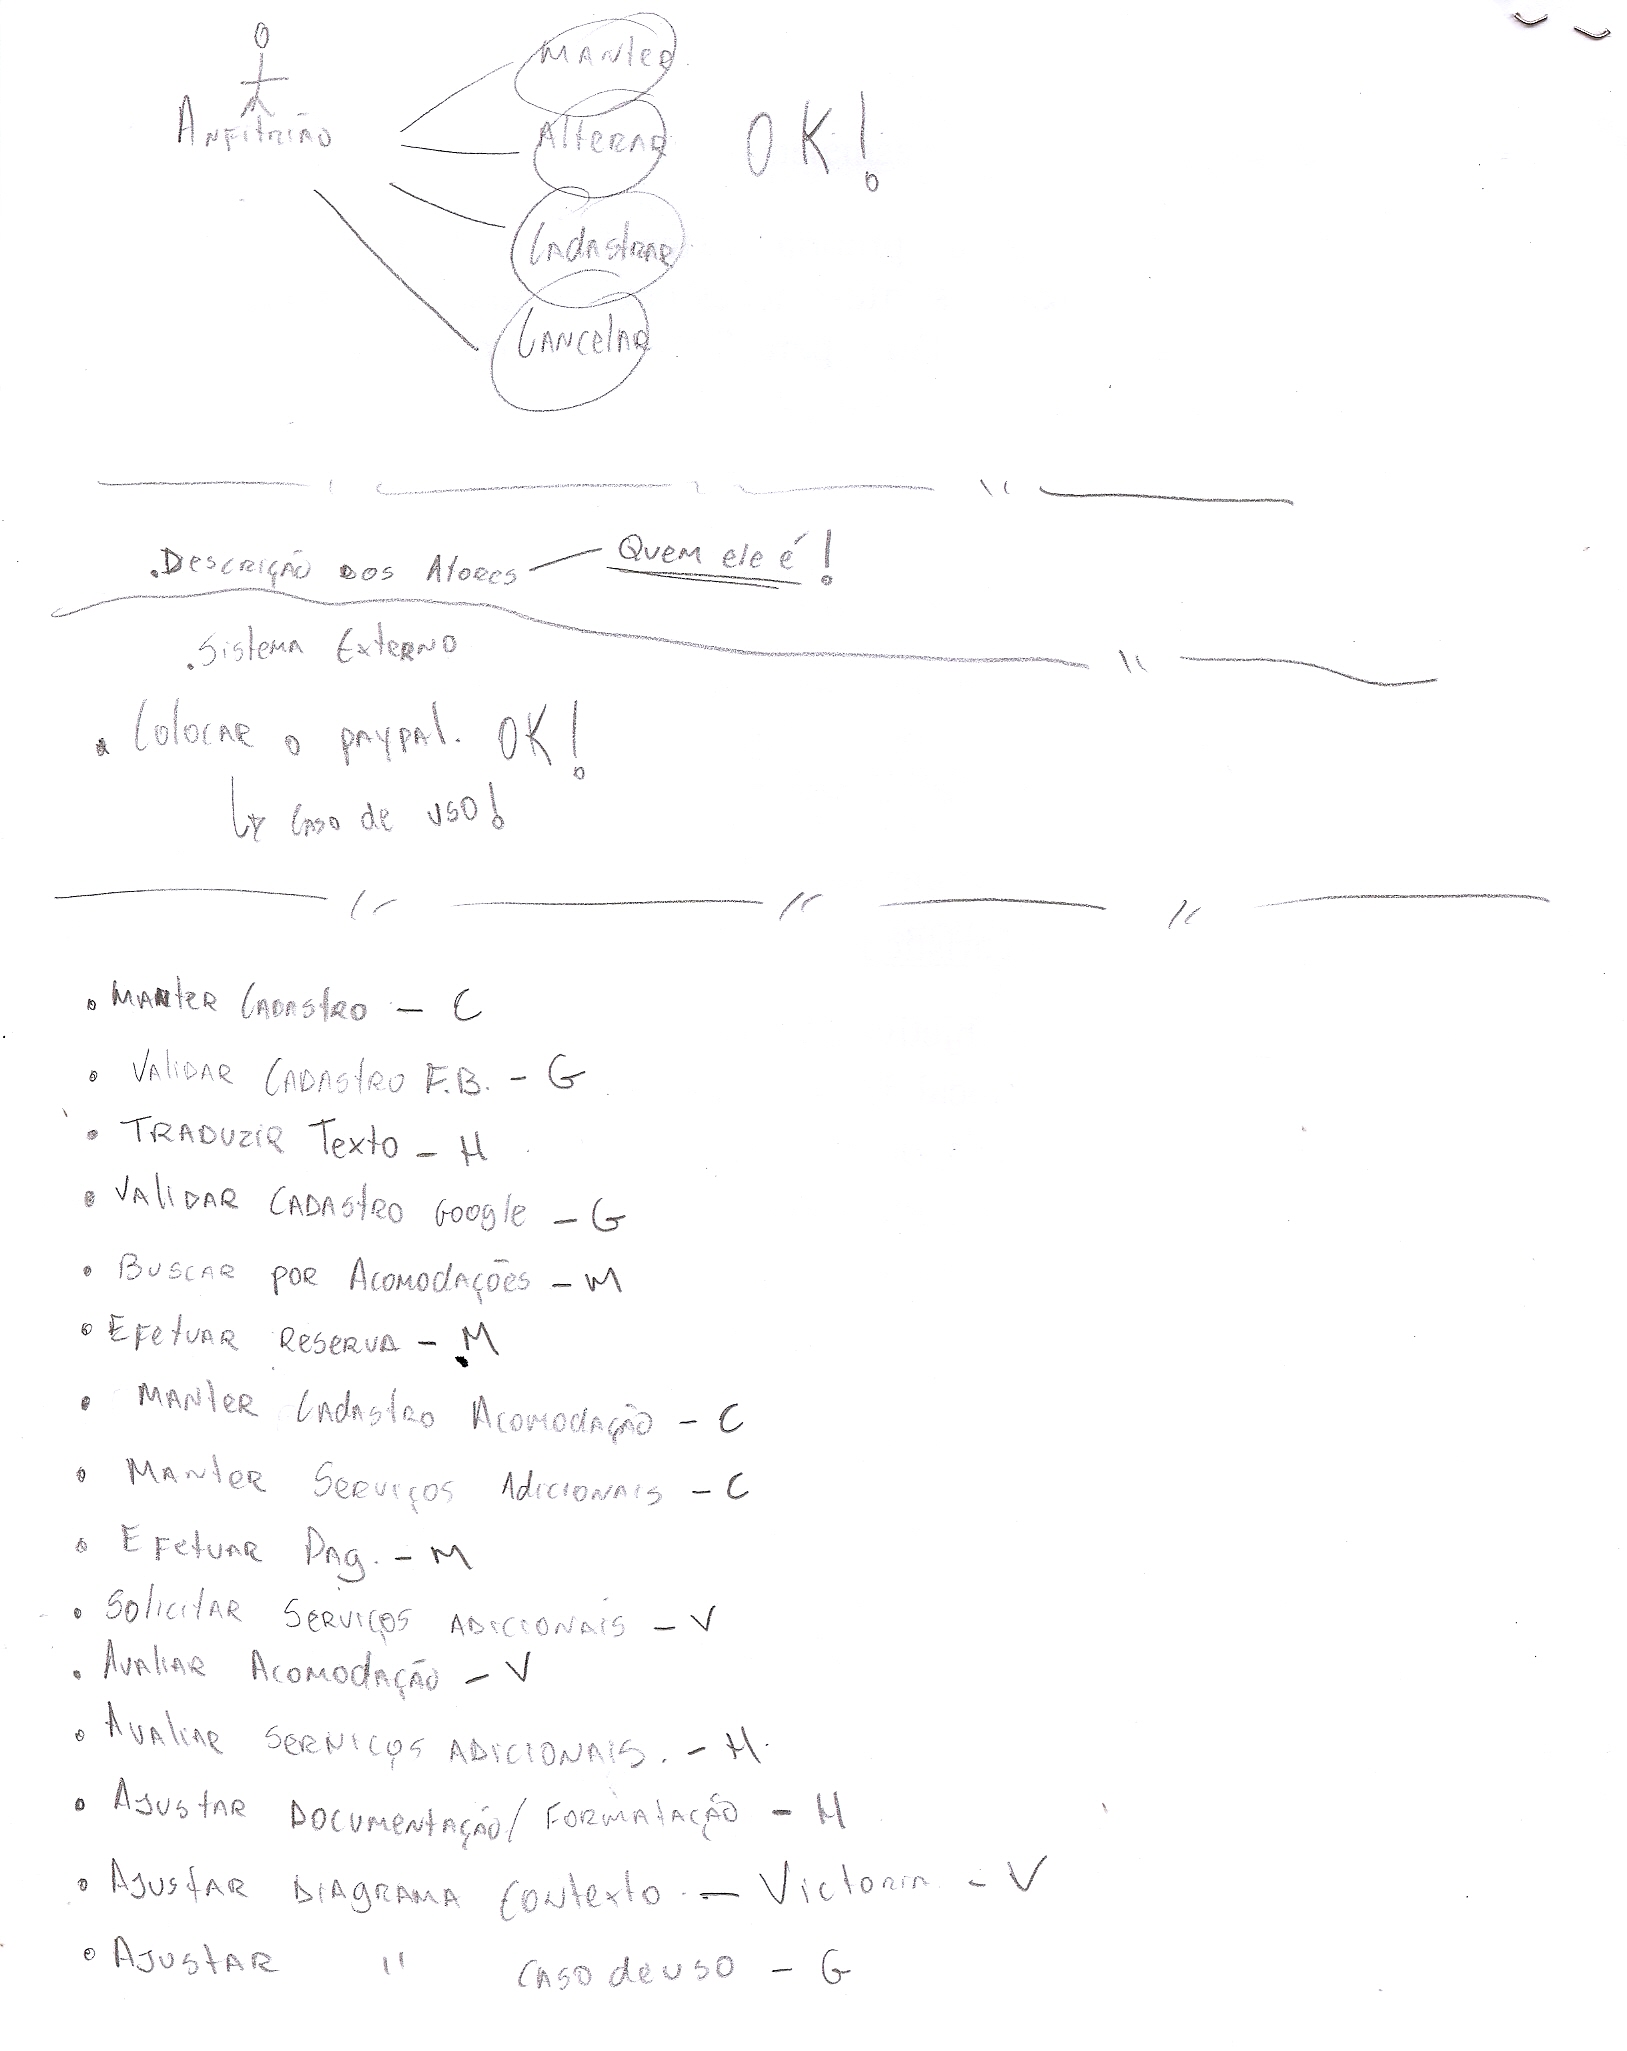 Manter
Anfitrião
Alterar
OK!
Cadastrar
Cancelar
.Descrição dos Atores — Quem ele é!
.Sistema Externo
• Colocar o paypal. OK!
Caso de uso!
• Manter Cadastro - C
• Validar Cadastro F.B. - G
• Traduzir Texto - H
• Validar Cadastro Google - G
• Buscar por Acomodações - M
• Efetuar Reserva - M
• Manter Cadastro Acomodação - C
• Manter Serviços Adicionais - C
• Efetuar Pag. - M
• Solicitar Serviços Adicionais - V
• Avaliar Acomodação - V
• Avaliar Serviços Adicionais. - H.
• Ajustar Documentação/Formatação - H
• Ajustar Diagrama Contexto - Victoria - V
• Ajustar " Caso de uso - G